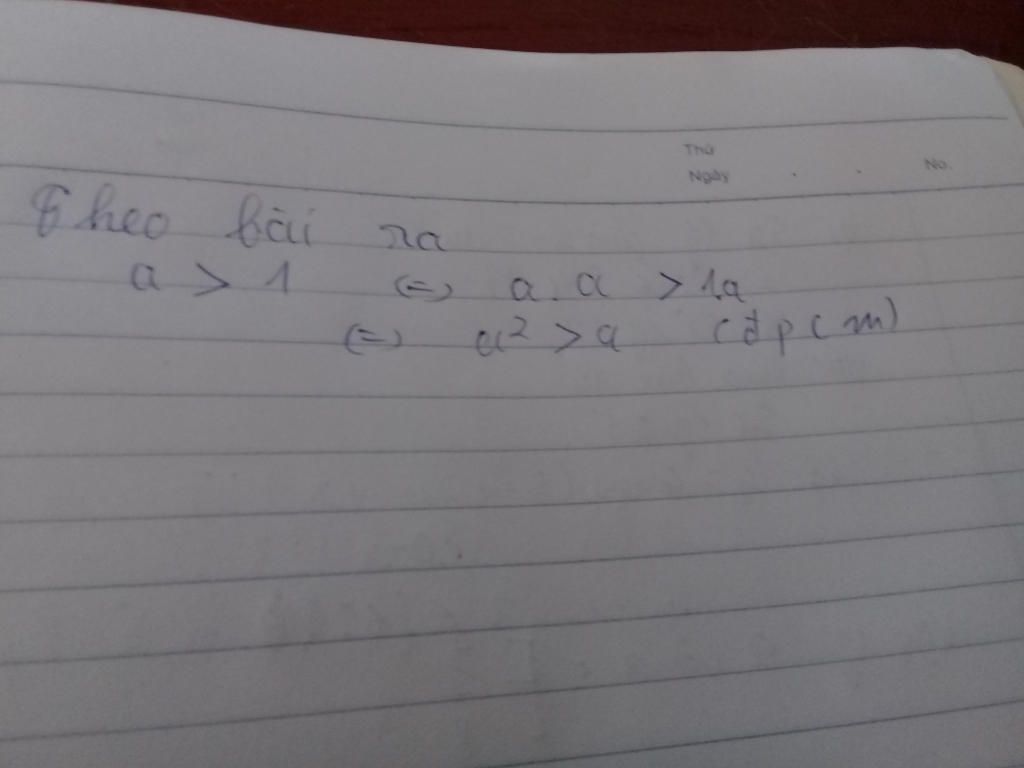 Thứ
Ngày . . No.
Theo bài ra
a > 1 (=) a.a > 1.a
(=) a² > a (đpcm)